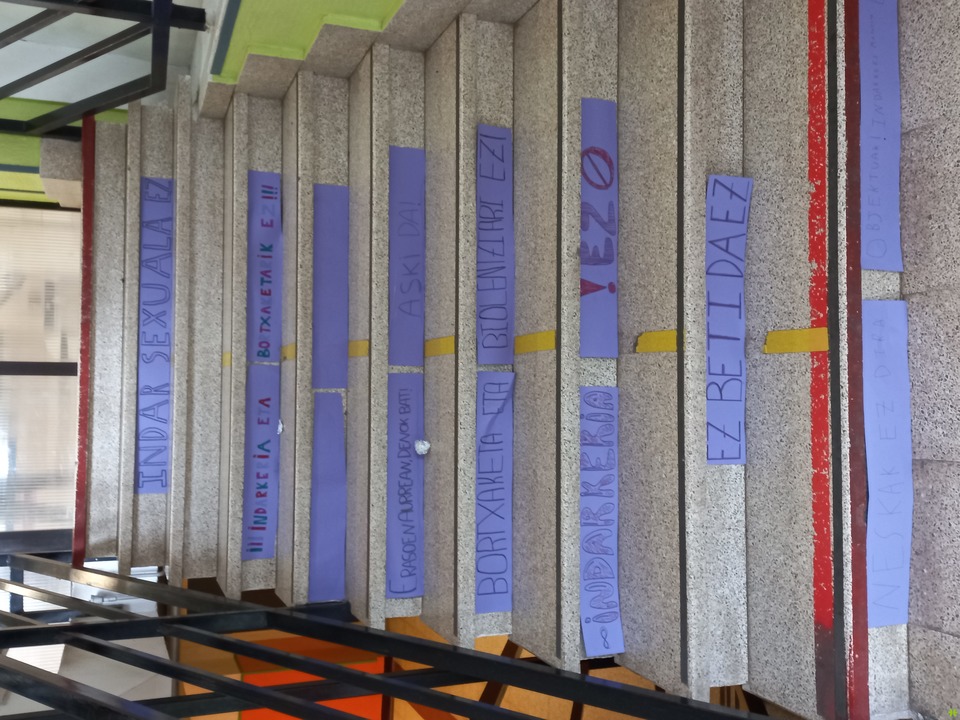 INDAR SEXUALA EZ
¡¡¡ INDARKERIA ETA BOTXAKETARIK EZ!!!
ERASOEN AURREAN, DENOK BAT! ASKI DA!
BORTXAKETA ETA BIOLENZIARI EZ!
INDARKERIA ! EZ O
EZ BETI DA EZ
NESKAK EZ DIRA OBJEKTUAK!